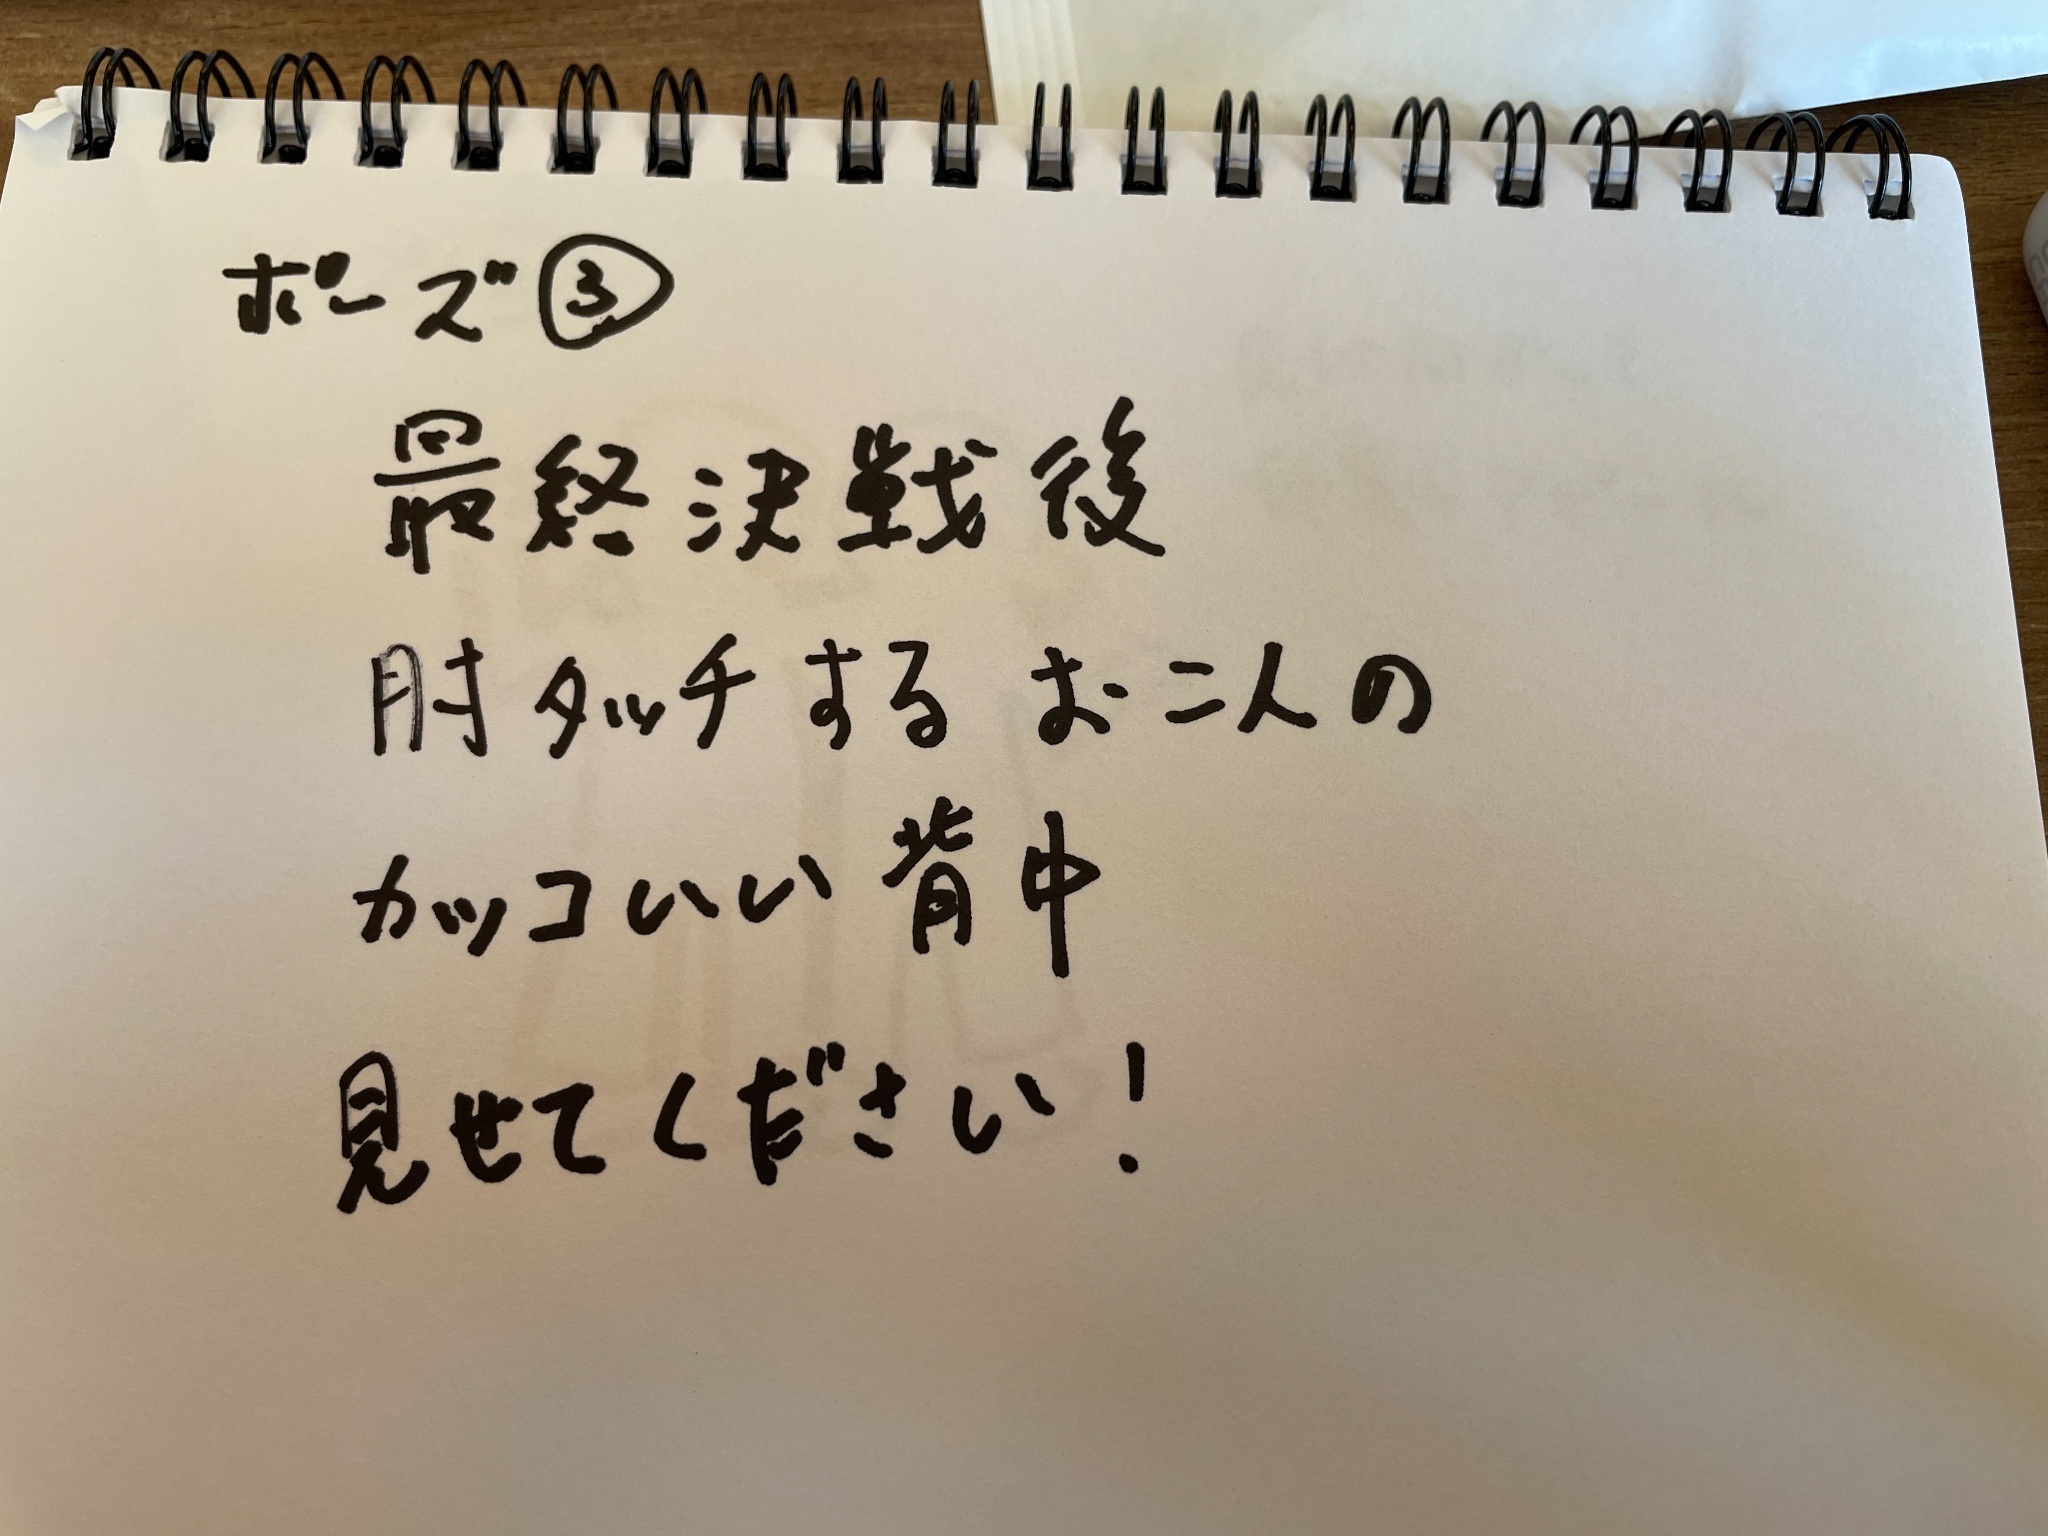 ポーズ③
最終決戦後
肘タッチするお二人の
カッコいい背中
見せてください!